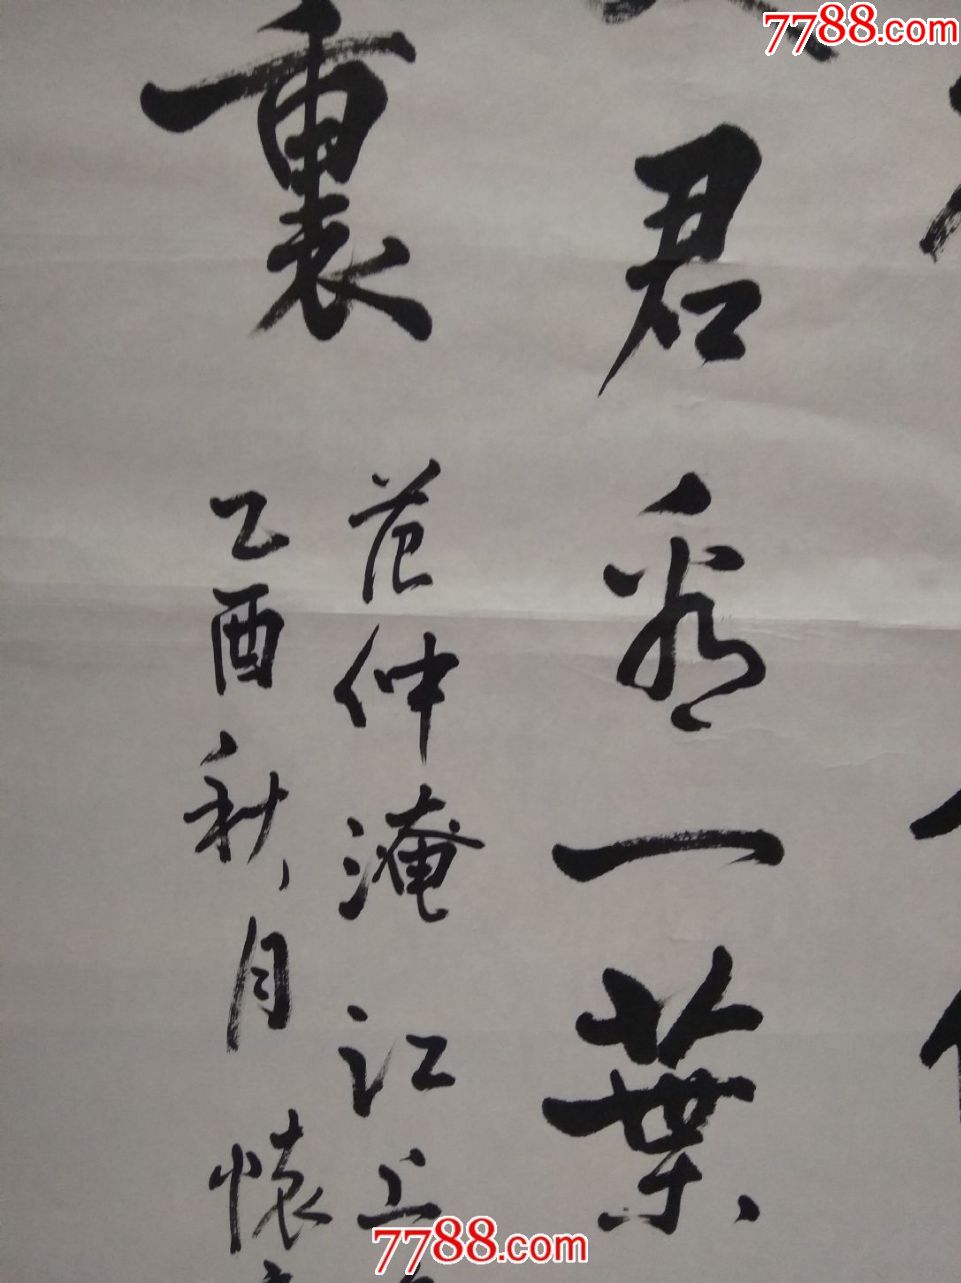 君看一葉
裏
范仲淹江上
乙酉秋月懷
7788.com
7788.com